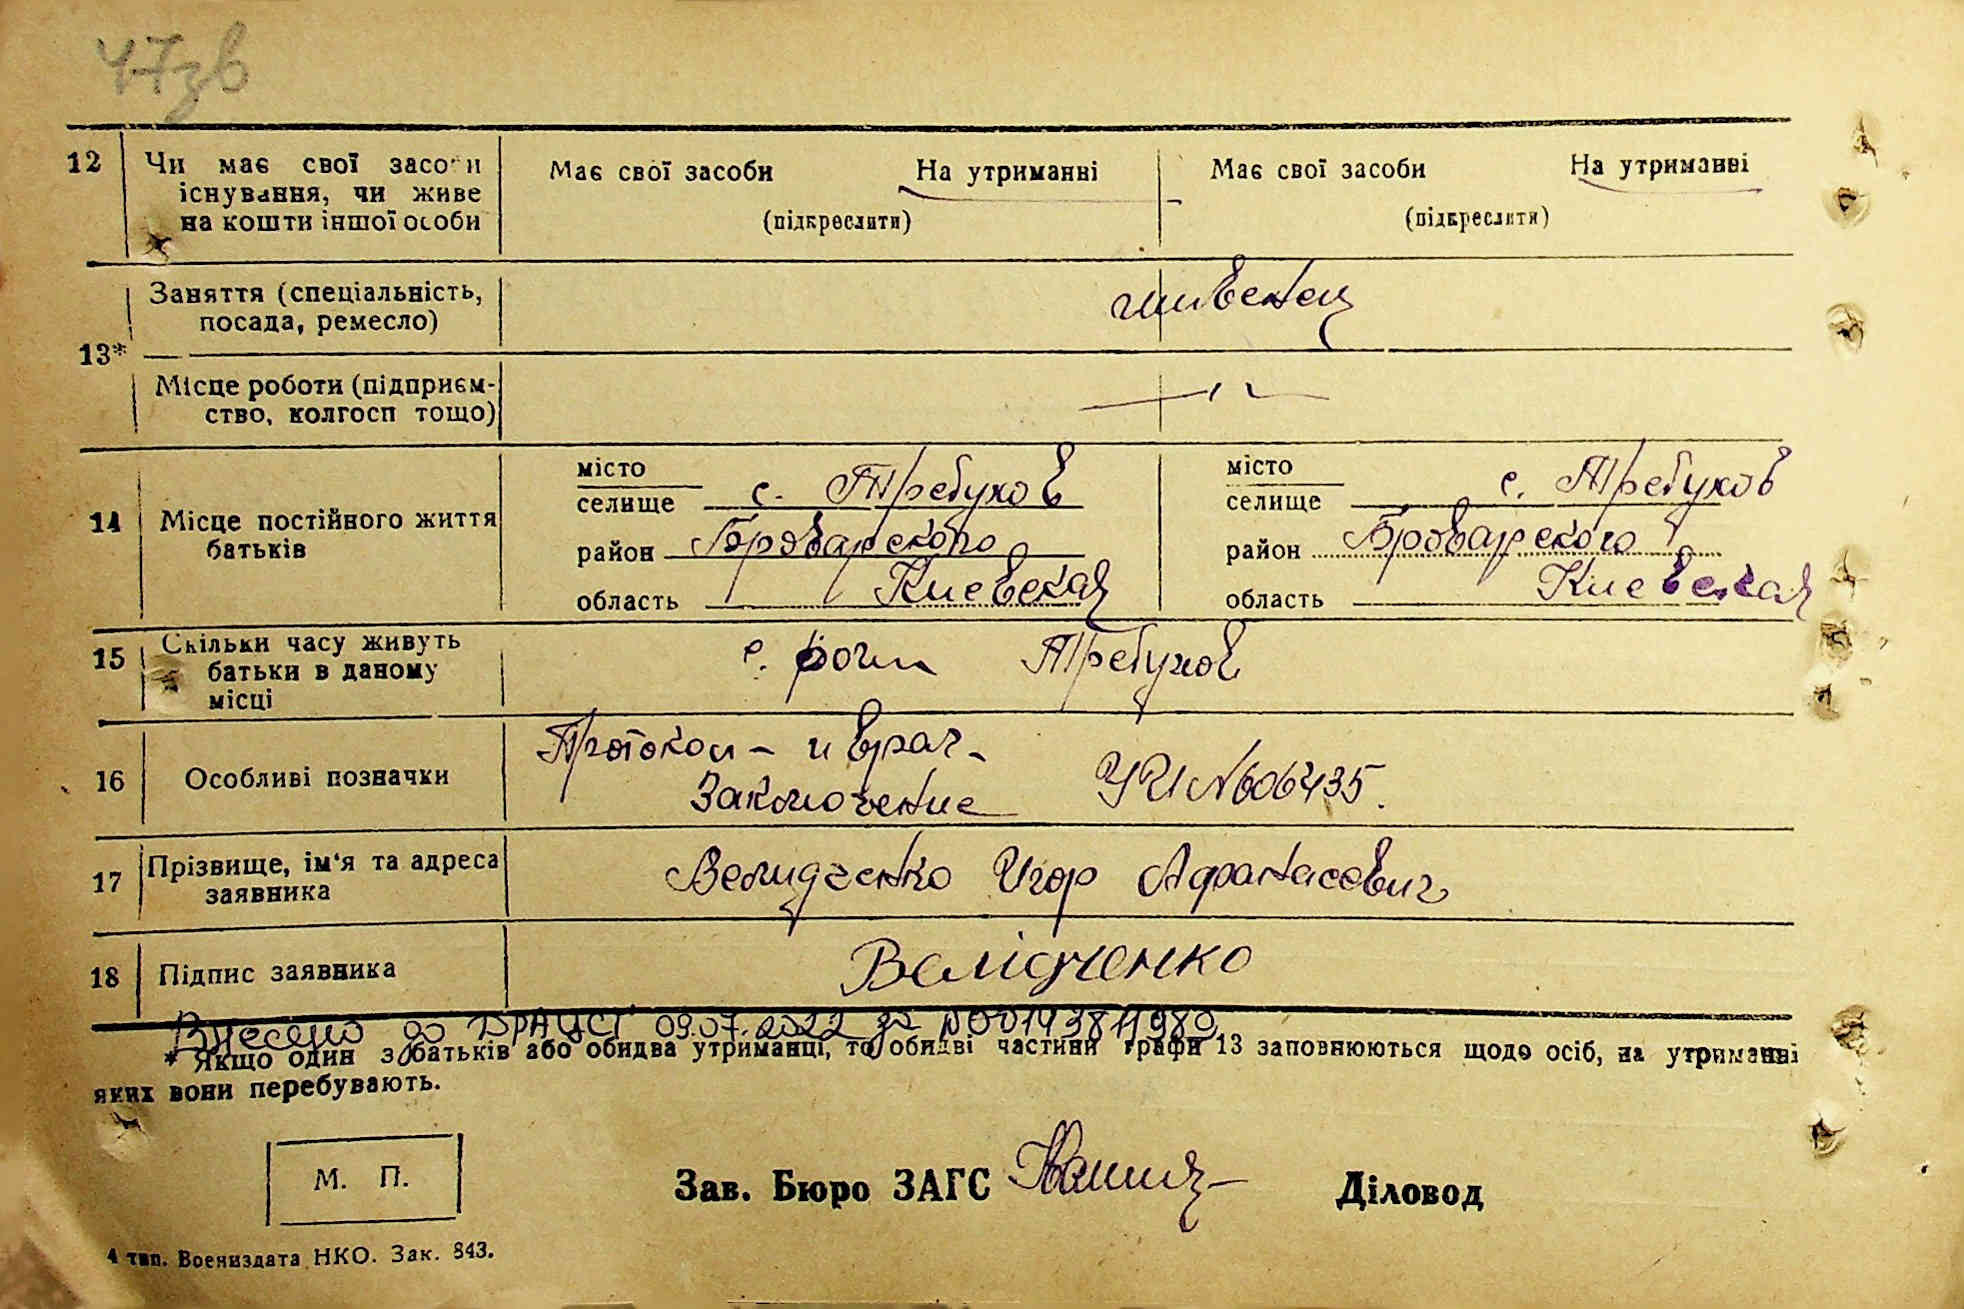 47зв
12 Чи має свої засоби Має свої засоби На утриманні Має свої засоби На утриманні
існування, чи живе
на кошти іншої особи (підкреслити) (підкреслити)
Заняття (спеціальність,
посада, ремесло) иждевенец
13*
Місце роботи (підприєм-
ство, колгосп тощо) — " —
місто місто
селище с. Требухов селище с. Требухов
14 Місце постійного життя район Броварского район Броварского
батьків
область Киевская область Киевская
15 Скільки часу живуть с. рочи Требухов
батьки в даному
місці
Протокол – и врач-
16 Особливі позначки Заключение УЧ №606435.
17 Прізвище, ім'я та адреса Велидченко Игор Афанасевич
заявника
18 Підпис заявника Велідченко
Внесено до ДРАЦСГ 09.07.2022 за №00143811980
* Якщо один з батьків або обидва утриманці, то обидві частини графи 13 заповнюються щодо осіб, на утриманні
яких вони перебувають.
М. П.
Зав. Бюро ЗАГС Діловод
4 тип. Воениздата НКО. Зак. 843.